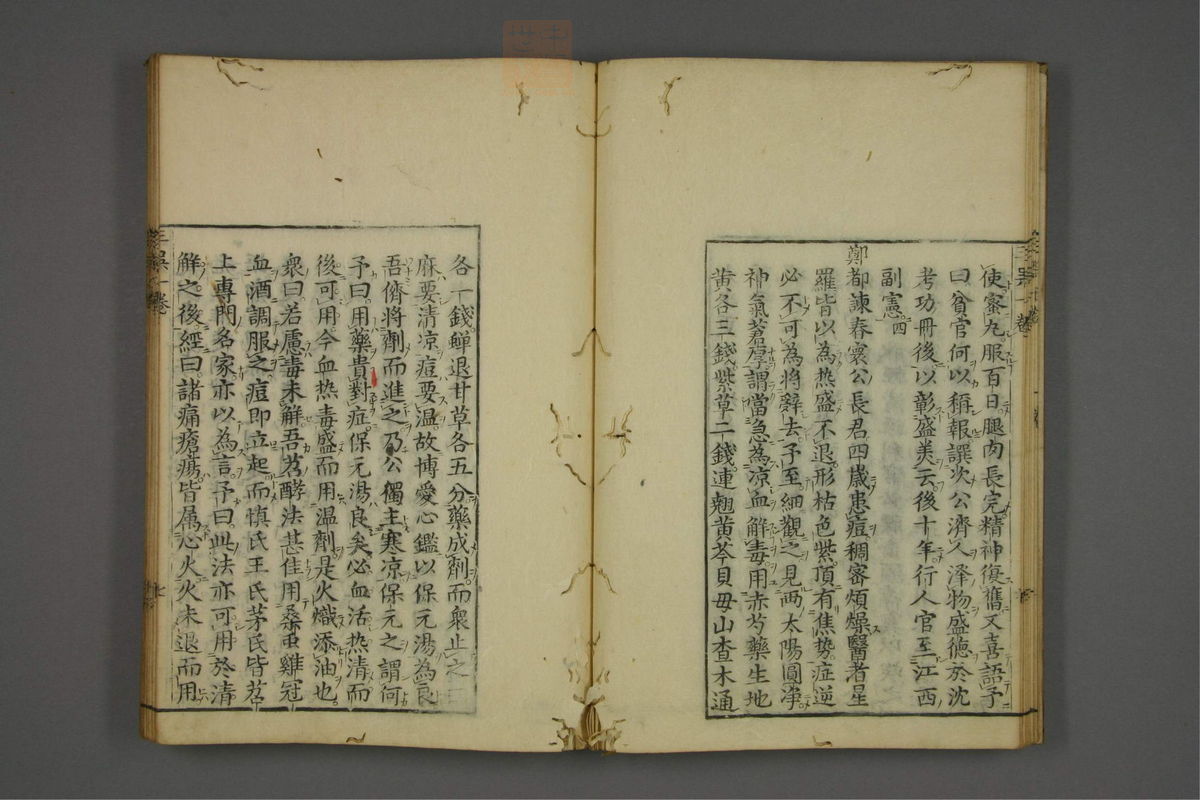 使蜜丸服百日腿肉長完精神復舊又喜語予
曰貧官何以稱報譔次公濟人澤物盛德於沈
考功冊後以彰盛美云後十年行人官至江西
副憲四
鄭都諫春寰公長君四歲患痘稠密煩燥醫者星
羅皆以為热盛不退形枯色紫頂有焦势症逆
必不可為將辭去予至細觀之見兩太陽圓淨
神氣蒼厚謂當急為凉血解毒用赤芍藥生地
黄各三錢紫草二錢連翹黄芩貝母山查木通
各一錢蟬退甘草各五分藥成劑而衆止之曰
麻要清凉痘要温故博愛心鑑以保元湯為良
吾儕將劑而進之乃公獨主寒凉保元之謂何
予曰用藥貴對症保元湯良矣必血活热清而
後可用今血热毒盛而用温劑是火熾添油也
衆曰若慮毒未解吾茗酵法甚佳用桑䖝雞冠
血酒調服之痘即立起而慎氏王氏茅氏皆苕
上專門名家亦以為言予曰此法亦可用於清
解之後經曰諸痛瘡瘍皆属心火火未退而用
三吳一卷